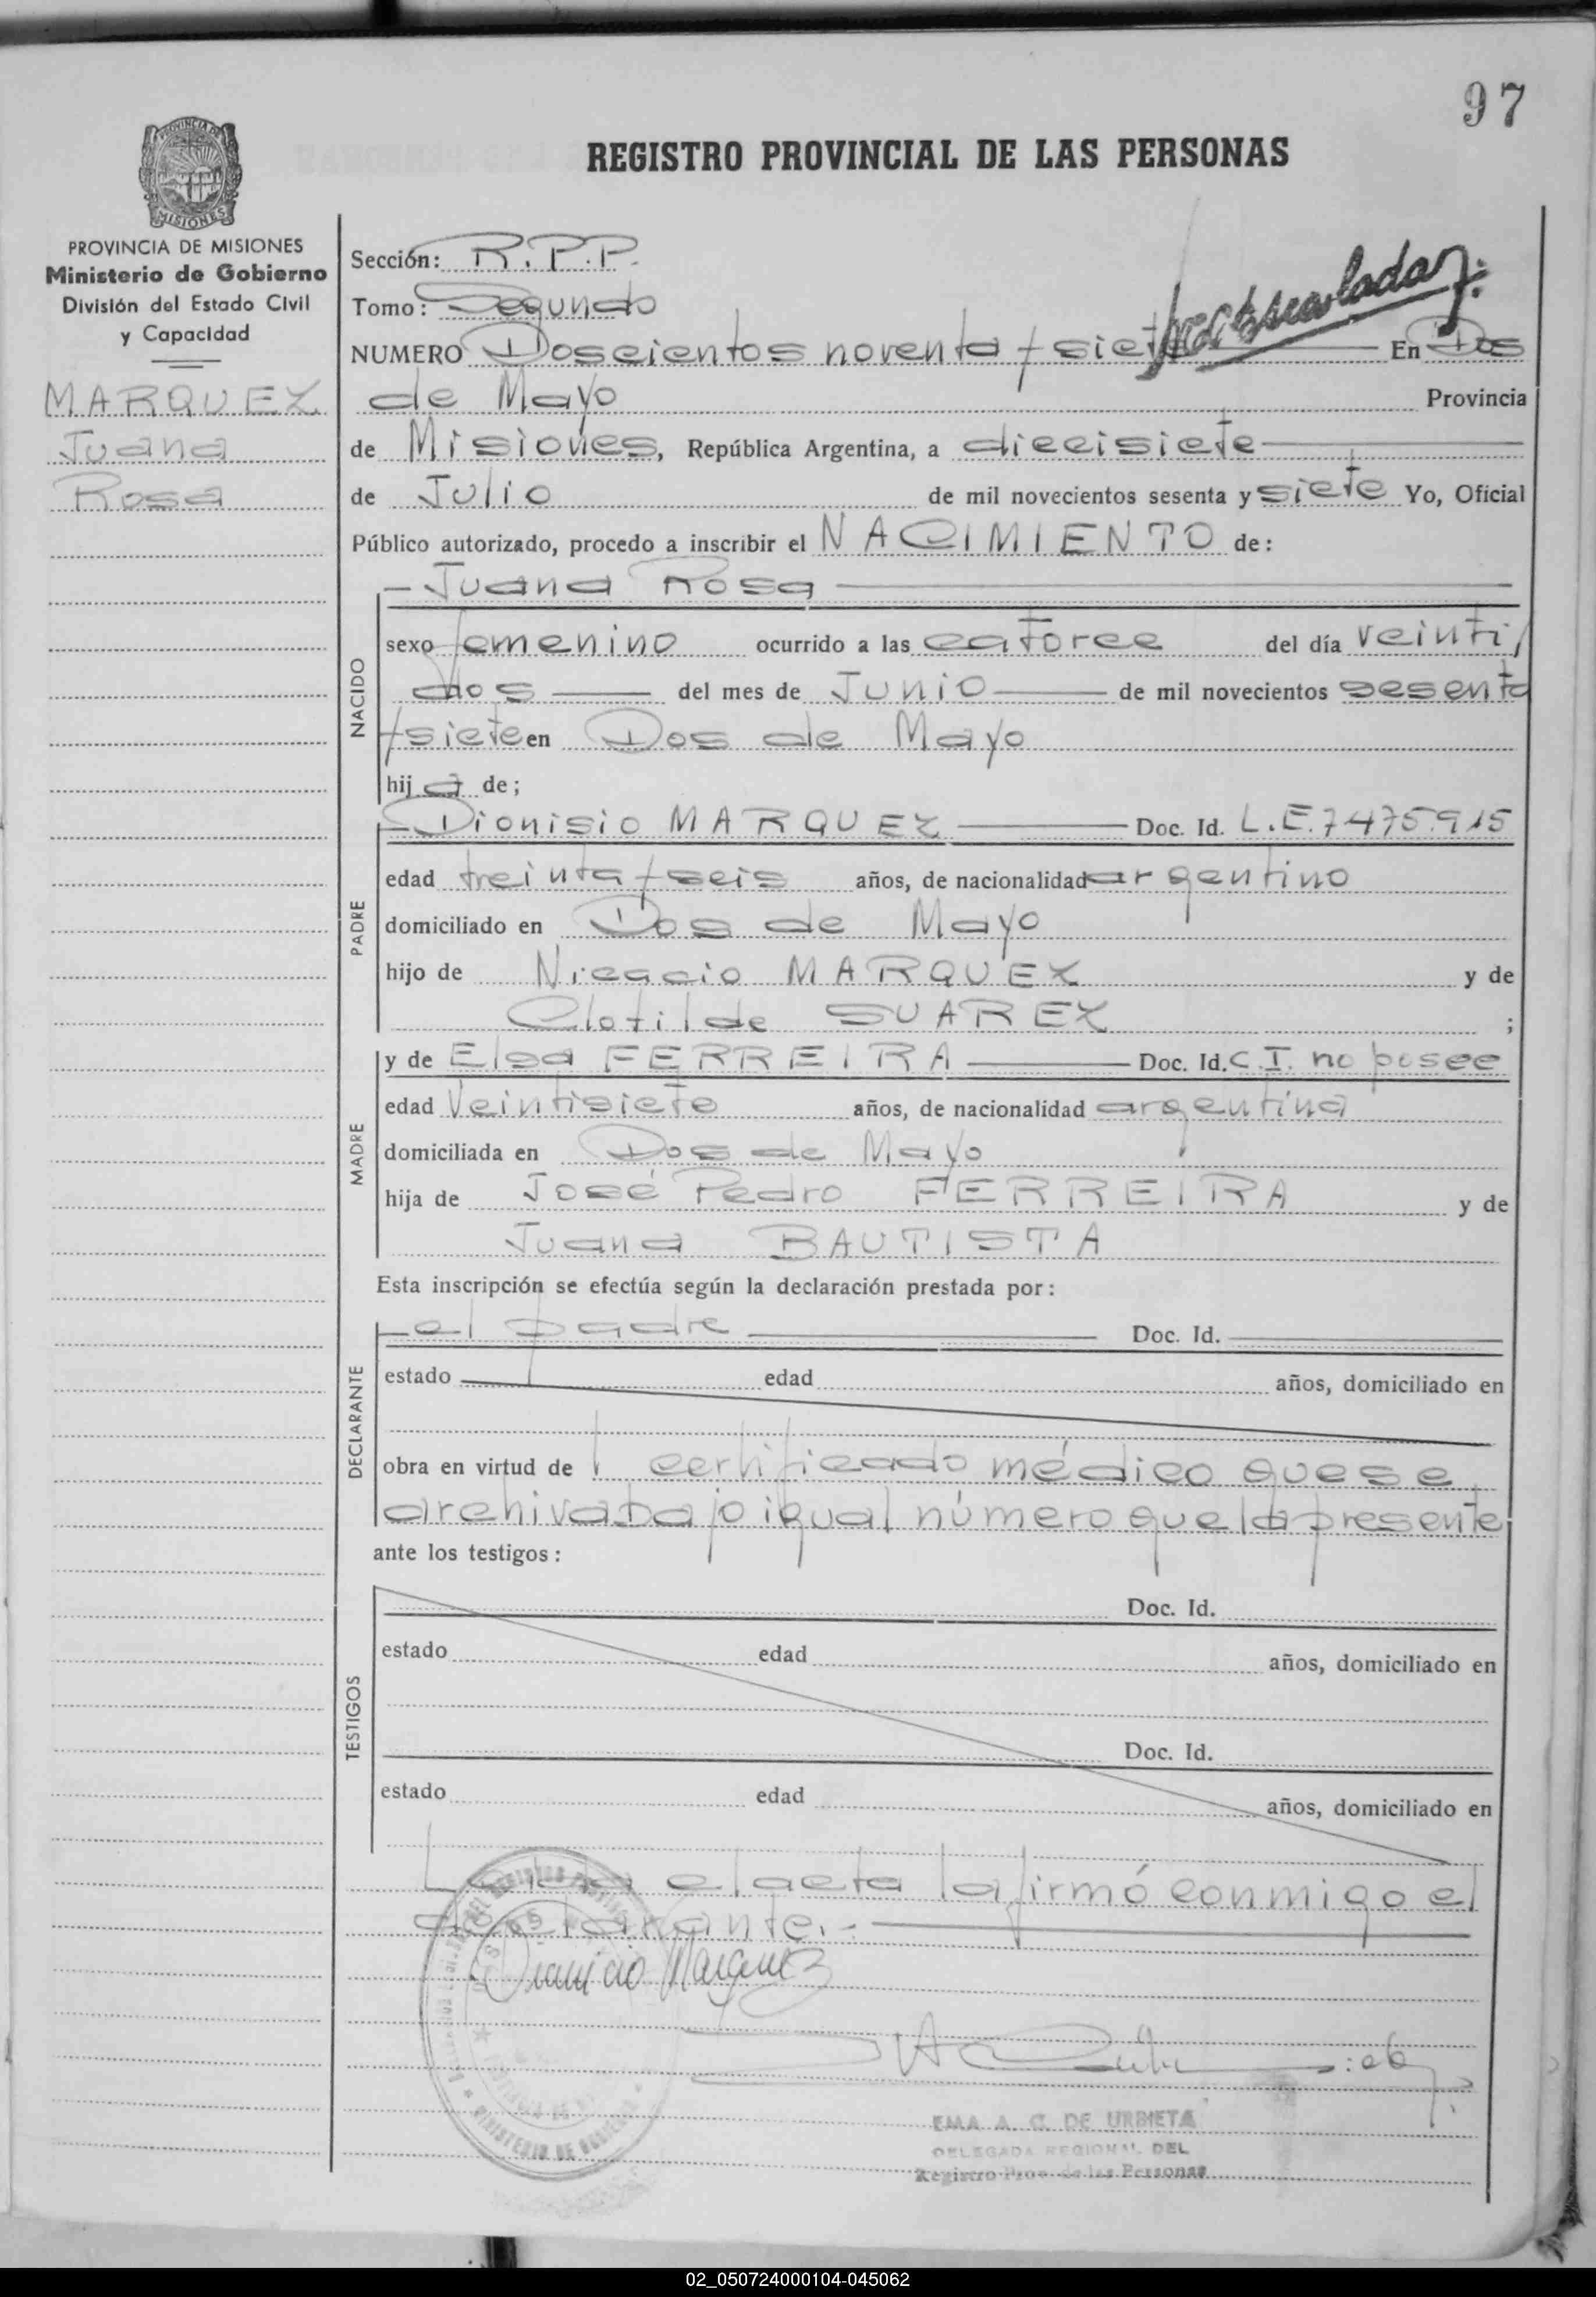 97
REGISTRO PROVINCIAL DE LAS PERSONAS
PROVINCIA DE MISIONES
Ministerio de Gobierno
División del Estado Civil
y Capacidad
MARQUEZ
Juana
Rosa
Sección: R.P.P.
Tomo: Segundo
NUMERO Doscientos noventa y siete En Dos
de Mayo Provincia
de Misiones, República Argentina, a diecisiete
de Julio de mil novecientos sesenta y siete Yo, Oficial
Público autorizado, procedo a inscribir el NACIMIENTO de:
Juana Rosa
NACIDO
sexo femenino ocurrido a las catorce del día veinti
dos del mes de Junio de mil novecientos sesenta
y siete en Dos de Mayo
hij a de;
PADRE
Dionisio MARQUEZ Doc. Id. L.E. 7475915
edad treinta y seis años, de nacionalidad argentino
domiciliado en Dos de Mayo
hijo de Nicacio MARQUEZ y de
Clotilde SUAREZ ;
MADRE
y de Elsa FERREIRA Doc. Id. C.I. no posee
edad Veintisiete años, de nacionalidad argentina
domiciliada en Dos de Mayo
hija de José Pedro FERREIRA y de
Juana BAUTISTA
Esta inscripción se efectúa según la declaración prestada por:
DECLARANTE
el padre Doc. Id.
estado edad años, domiciliado en
obra en virtud de certificado médico que se
archiva bajo igual número que la presente
ante los testigos:
TESTIGOS
Doc. Id.
estado edad años, domiciliado en
Doc. Id.
estado edad años, domiciliado en
Leída el acta la firmó conmigo el
declarante.-
Dionicio Marquez
EMA A. C. DE URBIETA
DELEGADA REGIONAL DEL
Registro Prov. de las Personas
MINISTERIO DE GOBIERNO
02_050724000104-045062